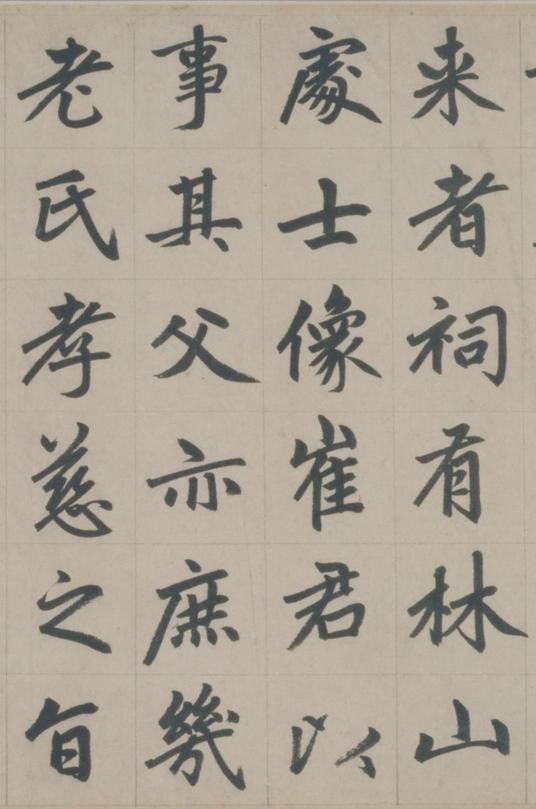 来者祠有林山
處士像崔君以
事其父亦庶幾
老氏孝慈之旨